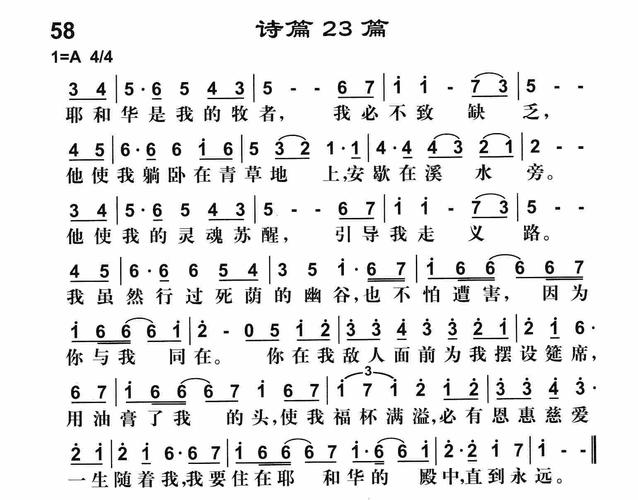 58 诗篇23篇
1=A 4/4
3 4 | 5 · 6 5 4 3 | 5 - - 6 7 | i i - 7 3 | 5 - -
耶和华是我的牧者, 我必不致缺乏,
4 5 | 6 · 6 6 i 6 | 5 3 2 1 · 1 | 4 · 4 4 3 2 1 | 2 - -
他使我躺卧在青草地上,安歇在溪水旁。
3 4 | 5 · 6 5 4 3 | 5 - - 6 7 | i i - 7 3 | 5 - -
他使我的灵魂苏醒, 引导我走义路。
4 5 | 6 · 6 5 4 | 3 5 i · 6 7 | i 6 6 6 6 6 7
我虽然行过死荫的幽谷,也不怕遭害, 因为
i 6 6 6 i | 2 - 0 5 i 2 | 3 3 4 3 3 2 i | 2 i 6 ·
你与我同在。 你在我敌人面前为我摆设筵席,
6 7 | i 6 6 6 6 7 | i 6 7 i 2 i | i 2 3 3 4 3 ·
用油膏了我的头,使我福杯满溢,必有恩惠慈爱
2 i | 2 i 2 6 · 6 7 | i 6 6 7 i 6 6 | 2 · 2 i 7 | i - - ‖
一生随着我,我要住在耶和华的殿中,直到永远。